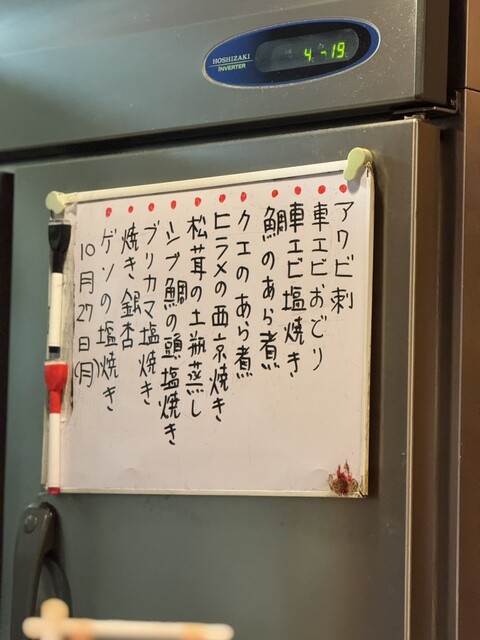 HOSHIZAKI
INVERTER
4 -19
アワビ刺
車エビおどり
車エビ塩焼き
鯛のあら煮
クエのあら煮
ヒラメの西京焼き
松茸の土瓶蒸し
シブ鯛の頭塩焼き
ブリカマ塩焼き
焼き銀杏
ゲソの塩焼き
10月27日(月)